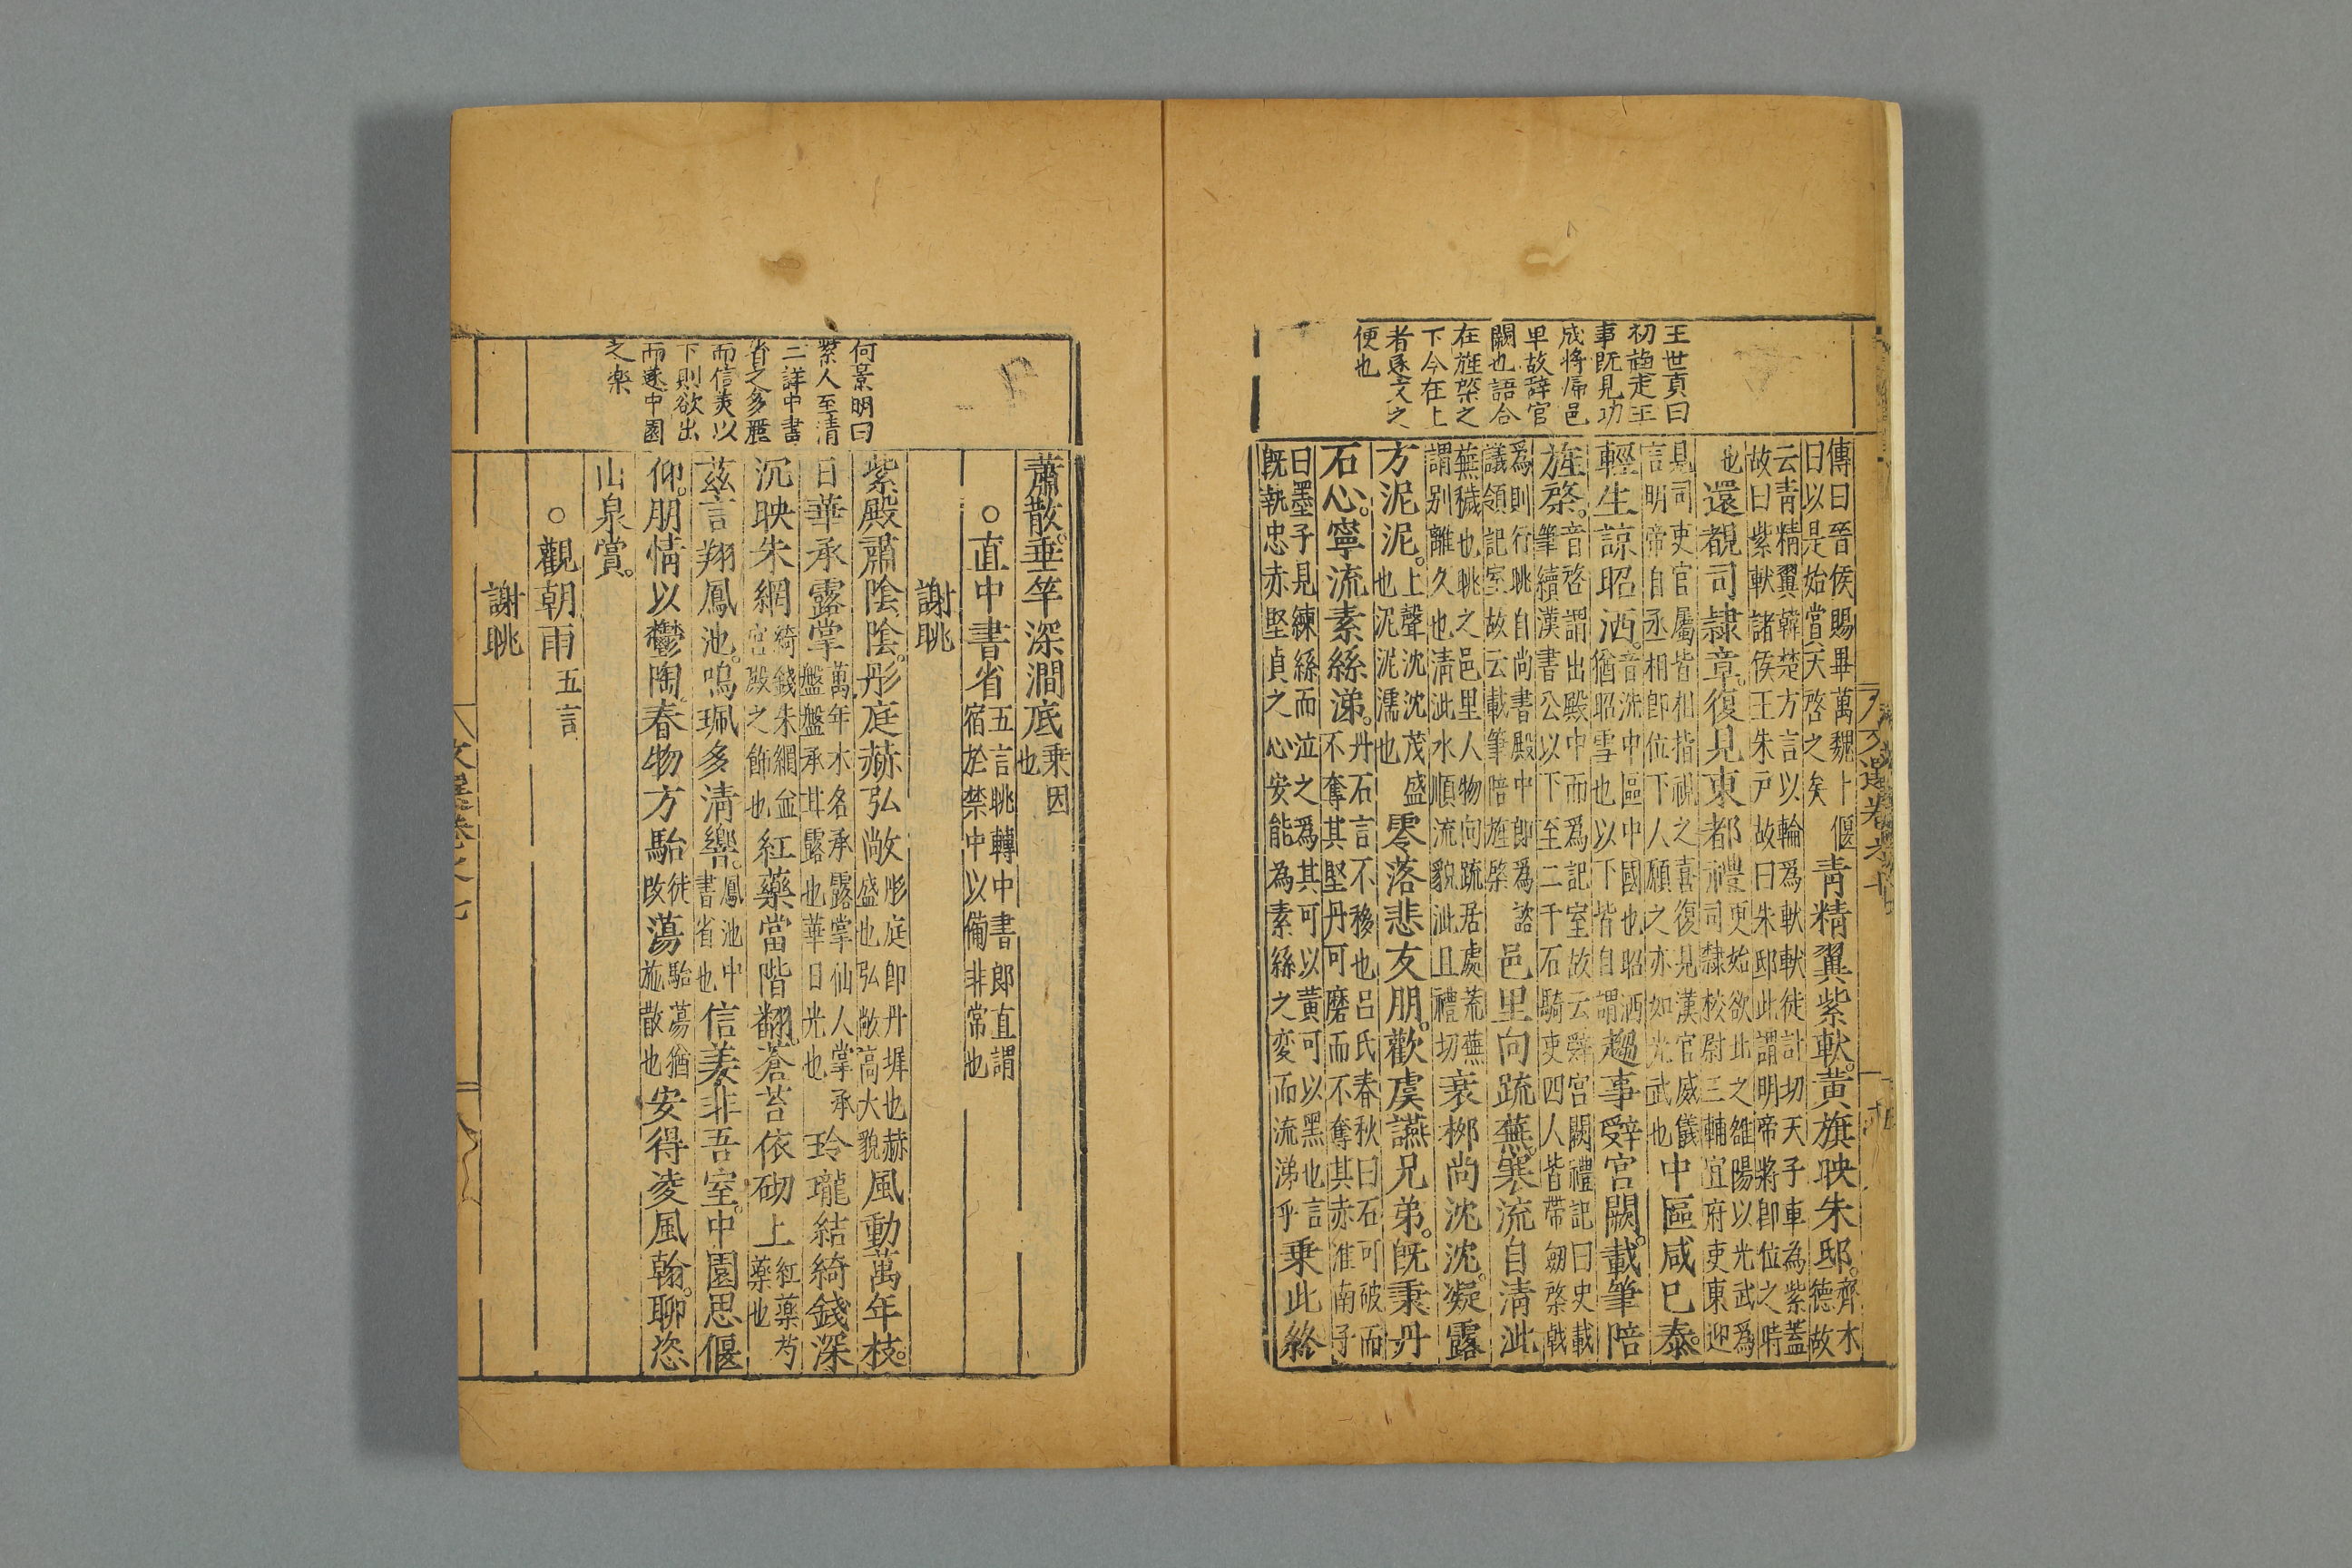 王世貞曰
初趨走王
事既見功
成將歸邑
里故辭官
闕也語合
在旌棨之
下今在上
者逐文之
便也
傳曰晉侯賜畢萬魏卜偃
曰以是始賞天啓之矣
青精翼紫軑黃旗映朱邸
齊木
德故
云青精翼韓楚方言以輪爲軑軑徒計切天子車為紫蓋
故曰紫軑諸侯王朱戸故曰朱邸此謂明帝將即位之時
也
還覩司隸章復見東都禮
更始欲北之雒陽以光武爲
司隸校尉三輔官府吏東迎
見司吏官屬皆相指視之喜復見漢官威儀
言明帝自丞相即位下人願之亦如光武也
中區咸已泰
輕生諒昭洒
音洗中區中國也昭洒
猶昭雪也以下皆自謂
趨事辭宮闕載筆陪
旌棨
音啓謂出殿中而爲記室故云辭宮闕禮記曰史載
筆續漢書公以下至二千石騎吏四人皆帶劒棨戟
爲則行眺自尚書殿中郎爲諮
議領記室故云載筆陪旌棨
邑里向疏蕪寒流自清泚
蕪穢也眺之邑里人物向疏居處荒蕪
謂别離久也清泚水順流貌泚且禮切
衰柳尚沈沈凝露
方泥泥
上聲沈沈茂盛
也泥泥濡也
零落悲友朋歡虞讌兄弟既秉丹
石心寧流素絲涕
丹石言不移也吕氏春秋曰石可破而
不奪其堅丹可磨而不奪其赤淮南子
曰墨子見練絲而泣之爲其可以黃可以黑也言
既執忠赤堅貞之心安能為素絲之変而流涕乎
乗此終
何景明曰
禁人至清
二詳中書
省之多麗
而信美以
下則欲出
而遂中園
之楽
蕭散垂竿深澗底
乗因
也
○直中書省
五言眺轉中書郎直謂
宿於禁中以備非常也
謝眺
紫殿肅陰陰彤庭赫弘敞
彤庭即丹墀也赫
盛也弘敞高大貌
風動萬年枝
日華承露掌
萬年木名承露掌仙人掌承
盤盤承其露也華日光也
玲瓏結綺錢深
沉映朱網
綺錢朱網並
宮殿之飾也
紅藥當階翻蒼苔依砌上
紅藥芍
藥也
茲言翔鳳池鳴珮多清響
鳳池中
書省也
信美非吾室中園思偃
仰朋情以鬱陶春物方駘
徒
改
蕩
駘蕩猶
施散也
安得凌風翰聊恣
山泉賞
○觀朝雨
五言
謝眺